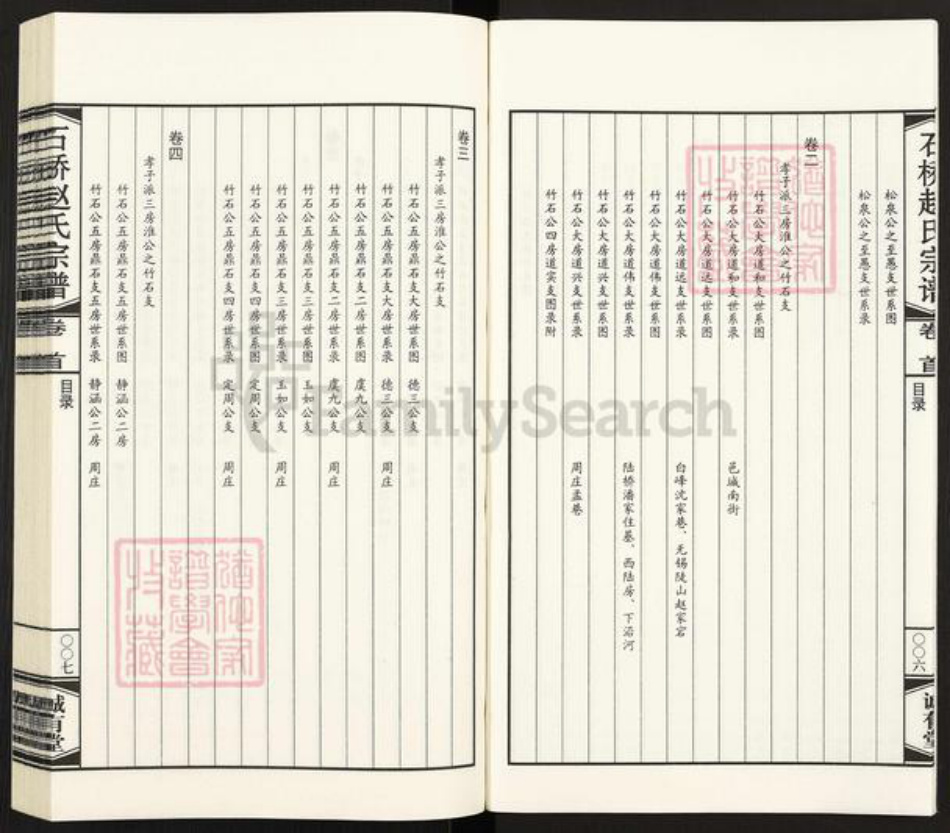 石桥赵氏宗谱
卷首
目录
〇〇六
诚有堂
松泉公之至愚支世系图
松泉公之至愚支世系录
卷二
孝子派三房淮公之竹石支
竹石公大房道和支世系图
竹石公大房道和支世系录 邑城南街
竹石公大房道达支世系图
竹石公大房道达支世系录 白峰沈家巷、无锡陡山赵家宕
竹石公大房道伟支世系图
竹石公大房道伟支世系录 陆桥潘家住基、西陆房、下沿河
竹石公大房道兴支世系图
竹石公大房道兴支世系录 周庄孟巷
竹石公四房道宾支图录附
卷三
孝子派三房淮公之竹石支
竹石公五房鼎石支大房世系图 德三公支
竹石公五房鼎石支大房世系录 德三公支 周庄
竹石公五房鼎石支二房世系图 虞九公支
竹石公五房鼎石支二房世系录 虞九公支 周庄
竹石公五房鼎石支三房世系图 玉如公支
竹石公五房鼎石支三房世系录 玉如公支 周庄
竹石公五房鼎石支四房世系图 定周公支
竹石公五房鼎石支四房世系录 定周公支 周庄
卷四
孝子派三房淮公之竹石支
竹石公五房鼎石支五房世系图 静涵公二房
竹石公五房鼎石支五房世系录 静涵公二房 周庄
石桥赵氏宗谱
卷首
目录
〇〇七
诚有堂
FamilySearch